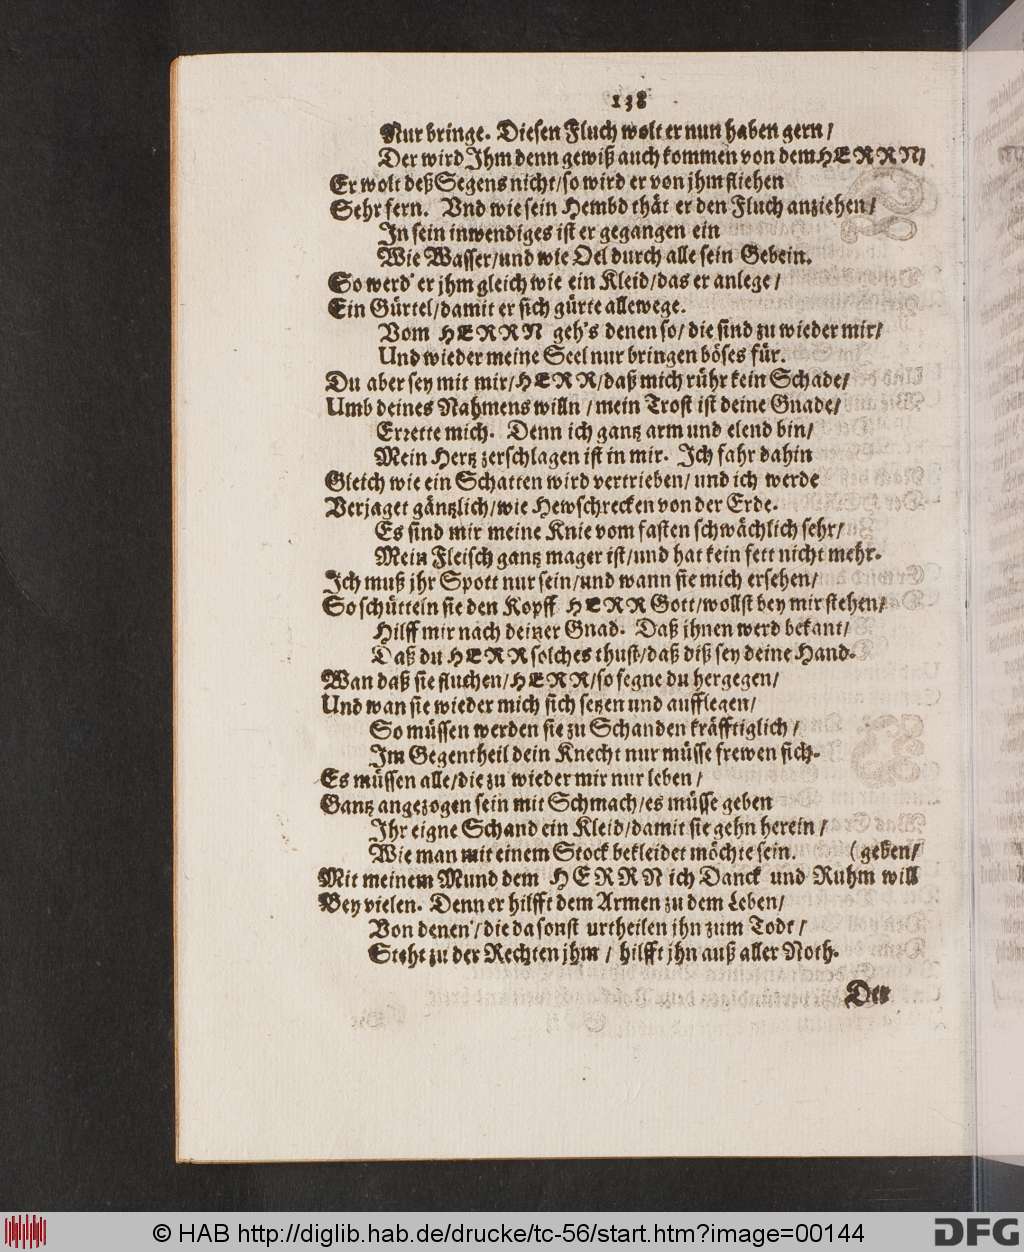 138
Nur bringe. Diesen Fluch wolt er nun haben gern /
Der wird Jhm denn gewiß auch kommen von dem HERRN /
Er wolt deß Segens nicht / so wird er von jhm fliehen
Sehr fern. Vnd wie sein Hembd thät er den Fluch anziehen /
In sein inwendiges ist er gegangen ein
Wie Wasser / und wie Oel durch alle sein Gebein.
So werd' er jhm gleich wie ein Kleid / das er anlege /
Ein Gürtel / damit er sich gürte allewege.
Vom HERRN geh's denen so / die sind zu wieder mir /
Und wieder meine Seel nur bringen böses für.
Du aber sey mit mir / HERR / daß mich rühr kein Schade /
Umb deines Nahmens willn / mein Trost ist deine Gnade /
Errette mich. Denn ich gantz arm und elend bin /
Mein Hertz zerschlagen ist in mir. Ich fahr dahin
Gleich wie ein Schatten wird vertrieben / und ich werde
Verjaget gäntzlich / wie Hewschrecken von der Erde.
Es sind mir meine Knie vom fasten schwächlich sehr /
Mein Fleisch gantz mager ist / und hat kein fett nicht mehr.
Ich muß jhr Spott nur sein / und wann sie mich ersehen /
So schütteln sie den Kopff HERR Gott / wollst bey mir stehen /
Hilff mir nach deiner Gnad. Daß ihnen werd bekant /
Daß du HERR solches thust / daß diß sey deine Hand.
Wan daß sie fluchen / HERR / so segne du hergegen /
Und wan sie wieder mich sich setzen und aufflegen /
So müssen werden sie zu Schanden kräfftiglich /
Im Gegentheil dein Knecht nur müsse frewen sich.
Es müssen alle / die zu wieder mir nur leben /
Gantz angezogen sein mit Schmach / es müsse geben
Ihr eigne Schand ein Kleid / damit sie gehn herein /
Wie man mit einem Stock bekleidet möchte sein. (geben /
Mit meinem Mund dem HERRN ich Danck und Ruhm will
Bey vielen. Denn er hilfft dem Armen zu dem Leben /
Von denen / die da sonst urtheilen jhn zum Tode /
Steht zu der Rechten jhm / hilfft jhn auß aller Noth.
Der
© HAB http://diglib.hab.de/drucke/tc-56/start.htm?image=00144
DFG